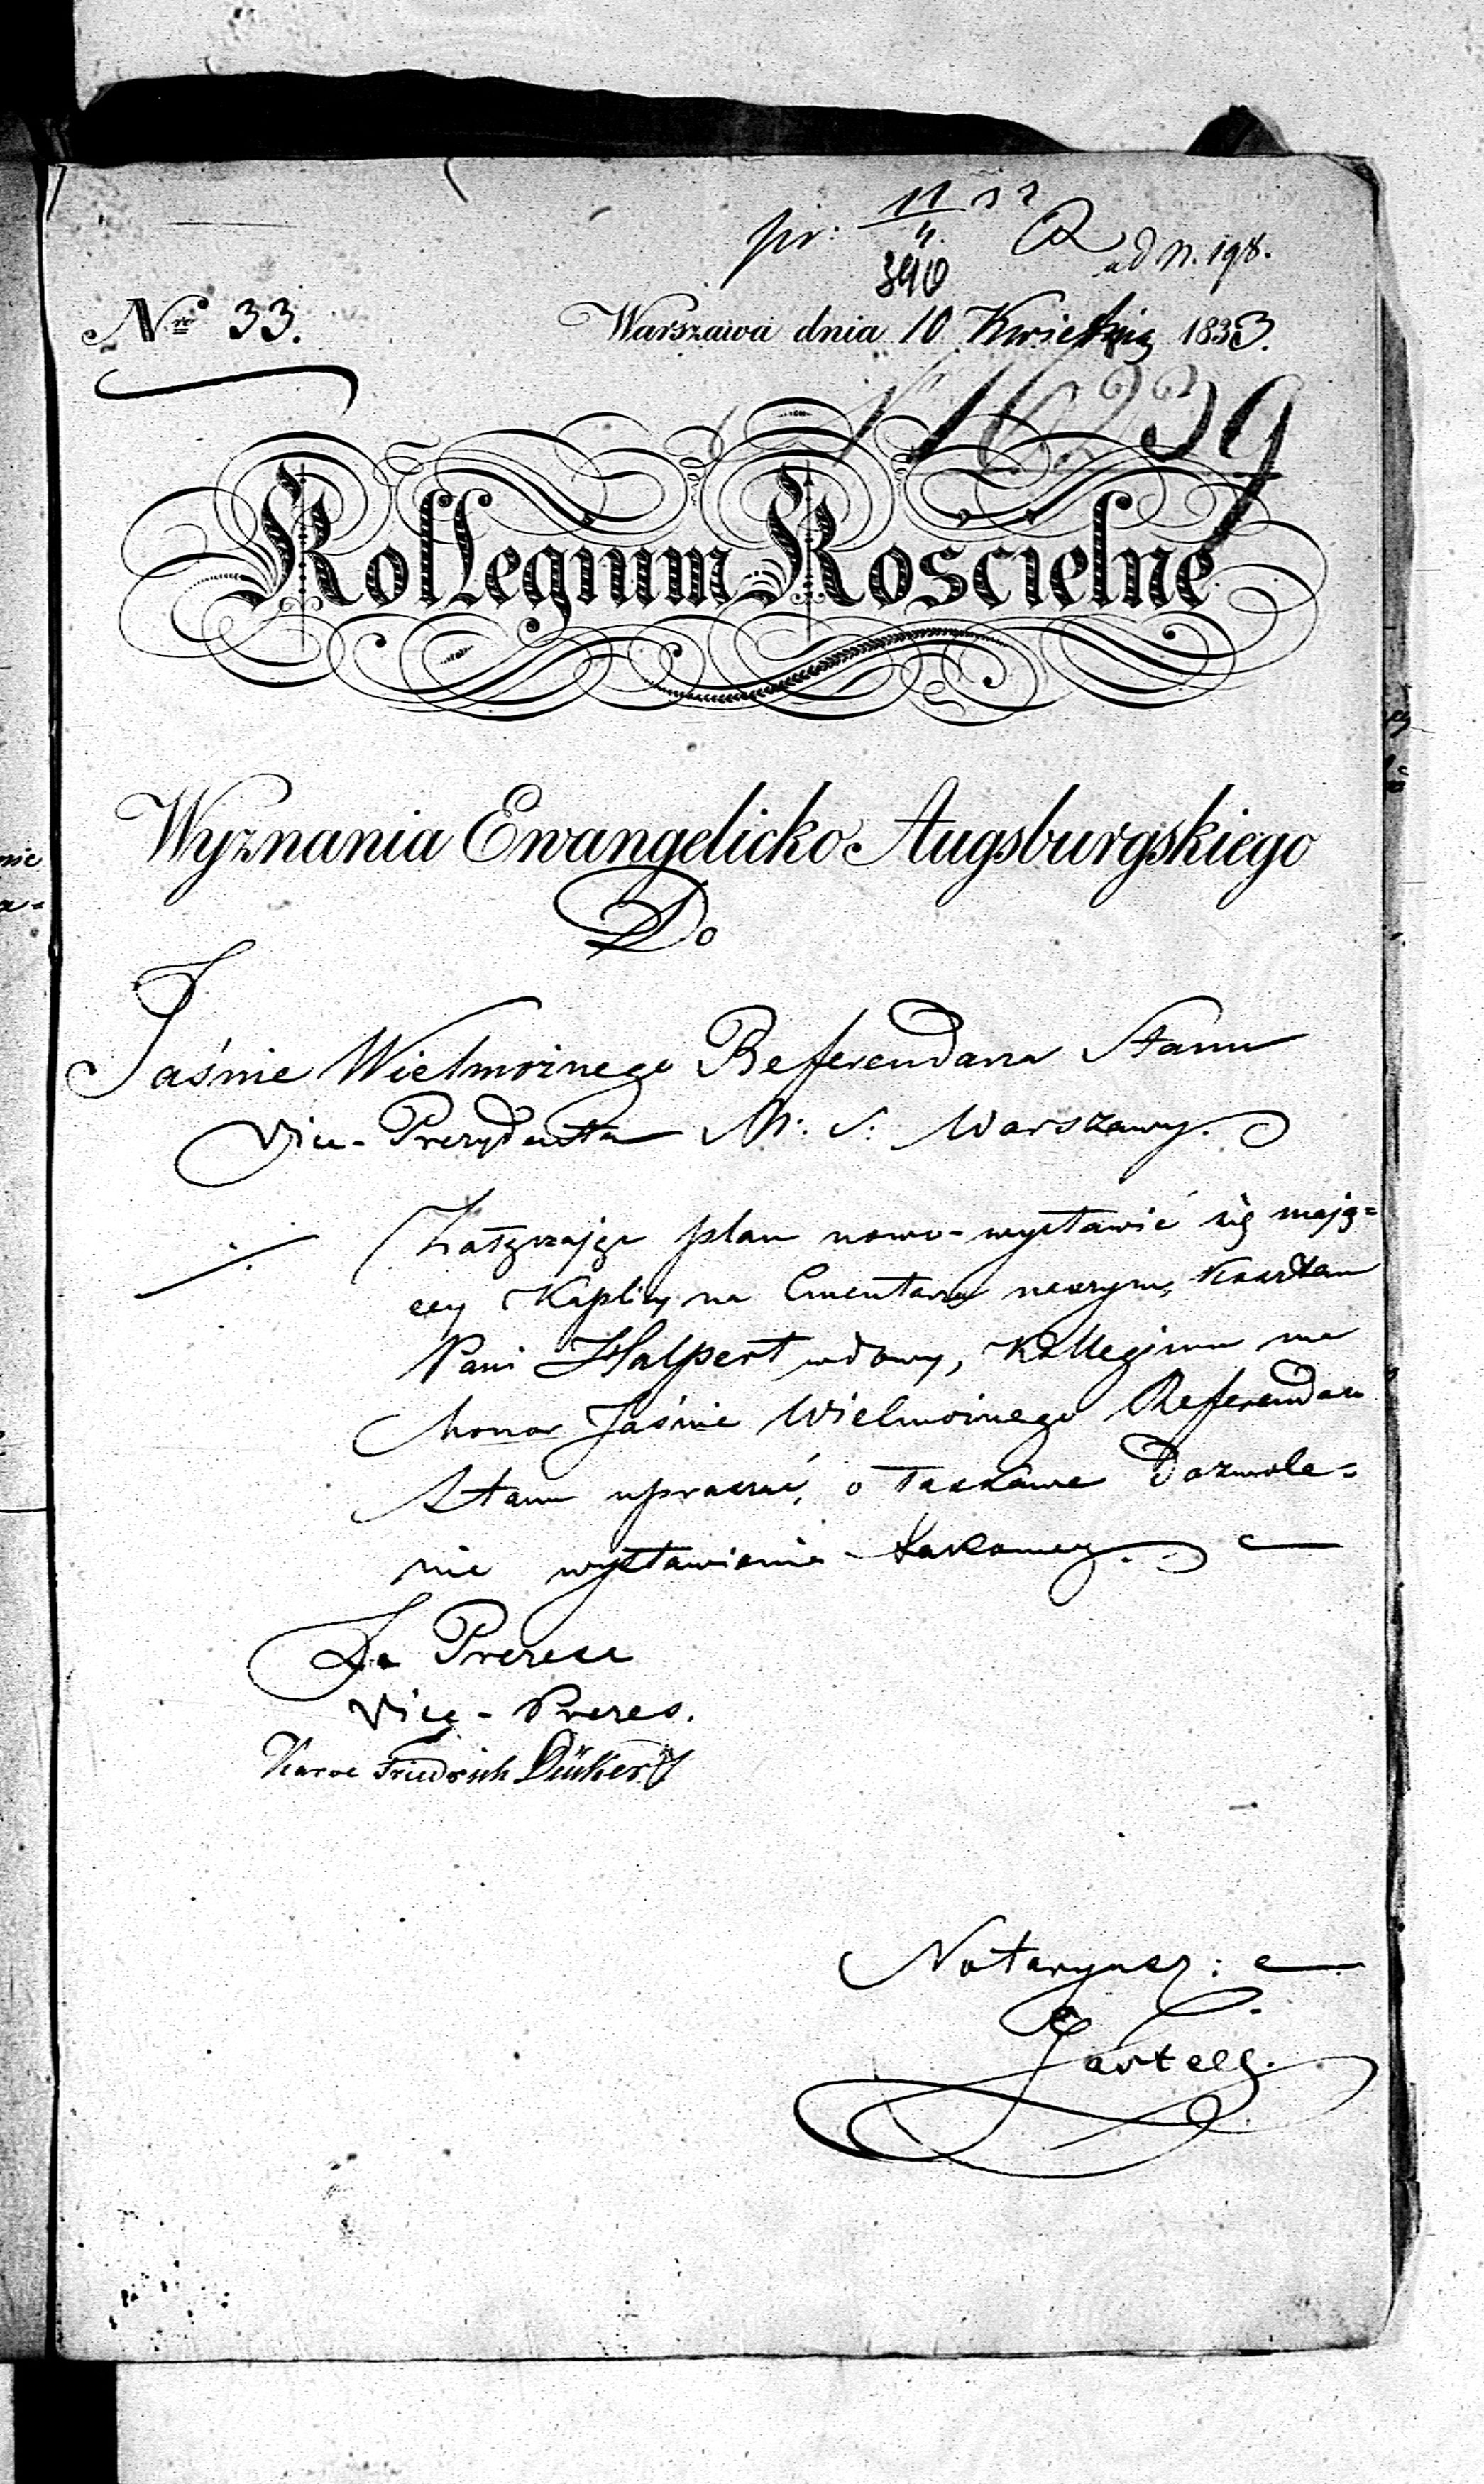 pr: 11/4 33
ad N. 198.
390
Nro 33.
Warszawa dnia 10 Kwietnia 1833.
N 16239
Kollegium Koscielne
Wyznania Ewangelicko Augsburgskiego
Do
Jaśnie Wielmożnego Referendarza Stanu
Vice-Prezydenta M: S: Warszawy.
Załączając plan nowo-wystawić się mają=
cey Kaplicy na Cmentarzu naszym, kosztem
Pani Halpert wdowy, Kollegium ma
honor Jaśnie Wielmożnego Referendarza
Stanu upraszać, o łaskawe dozwole=
nie wystawienia takowey.
Za Prezesa
Vice-Prezes.
Karol Friedrich Dückert
Notaryusz: